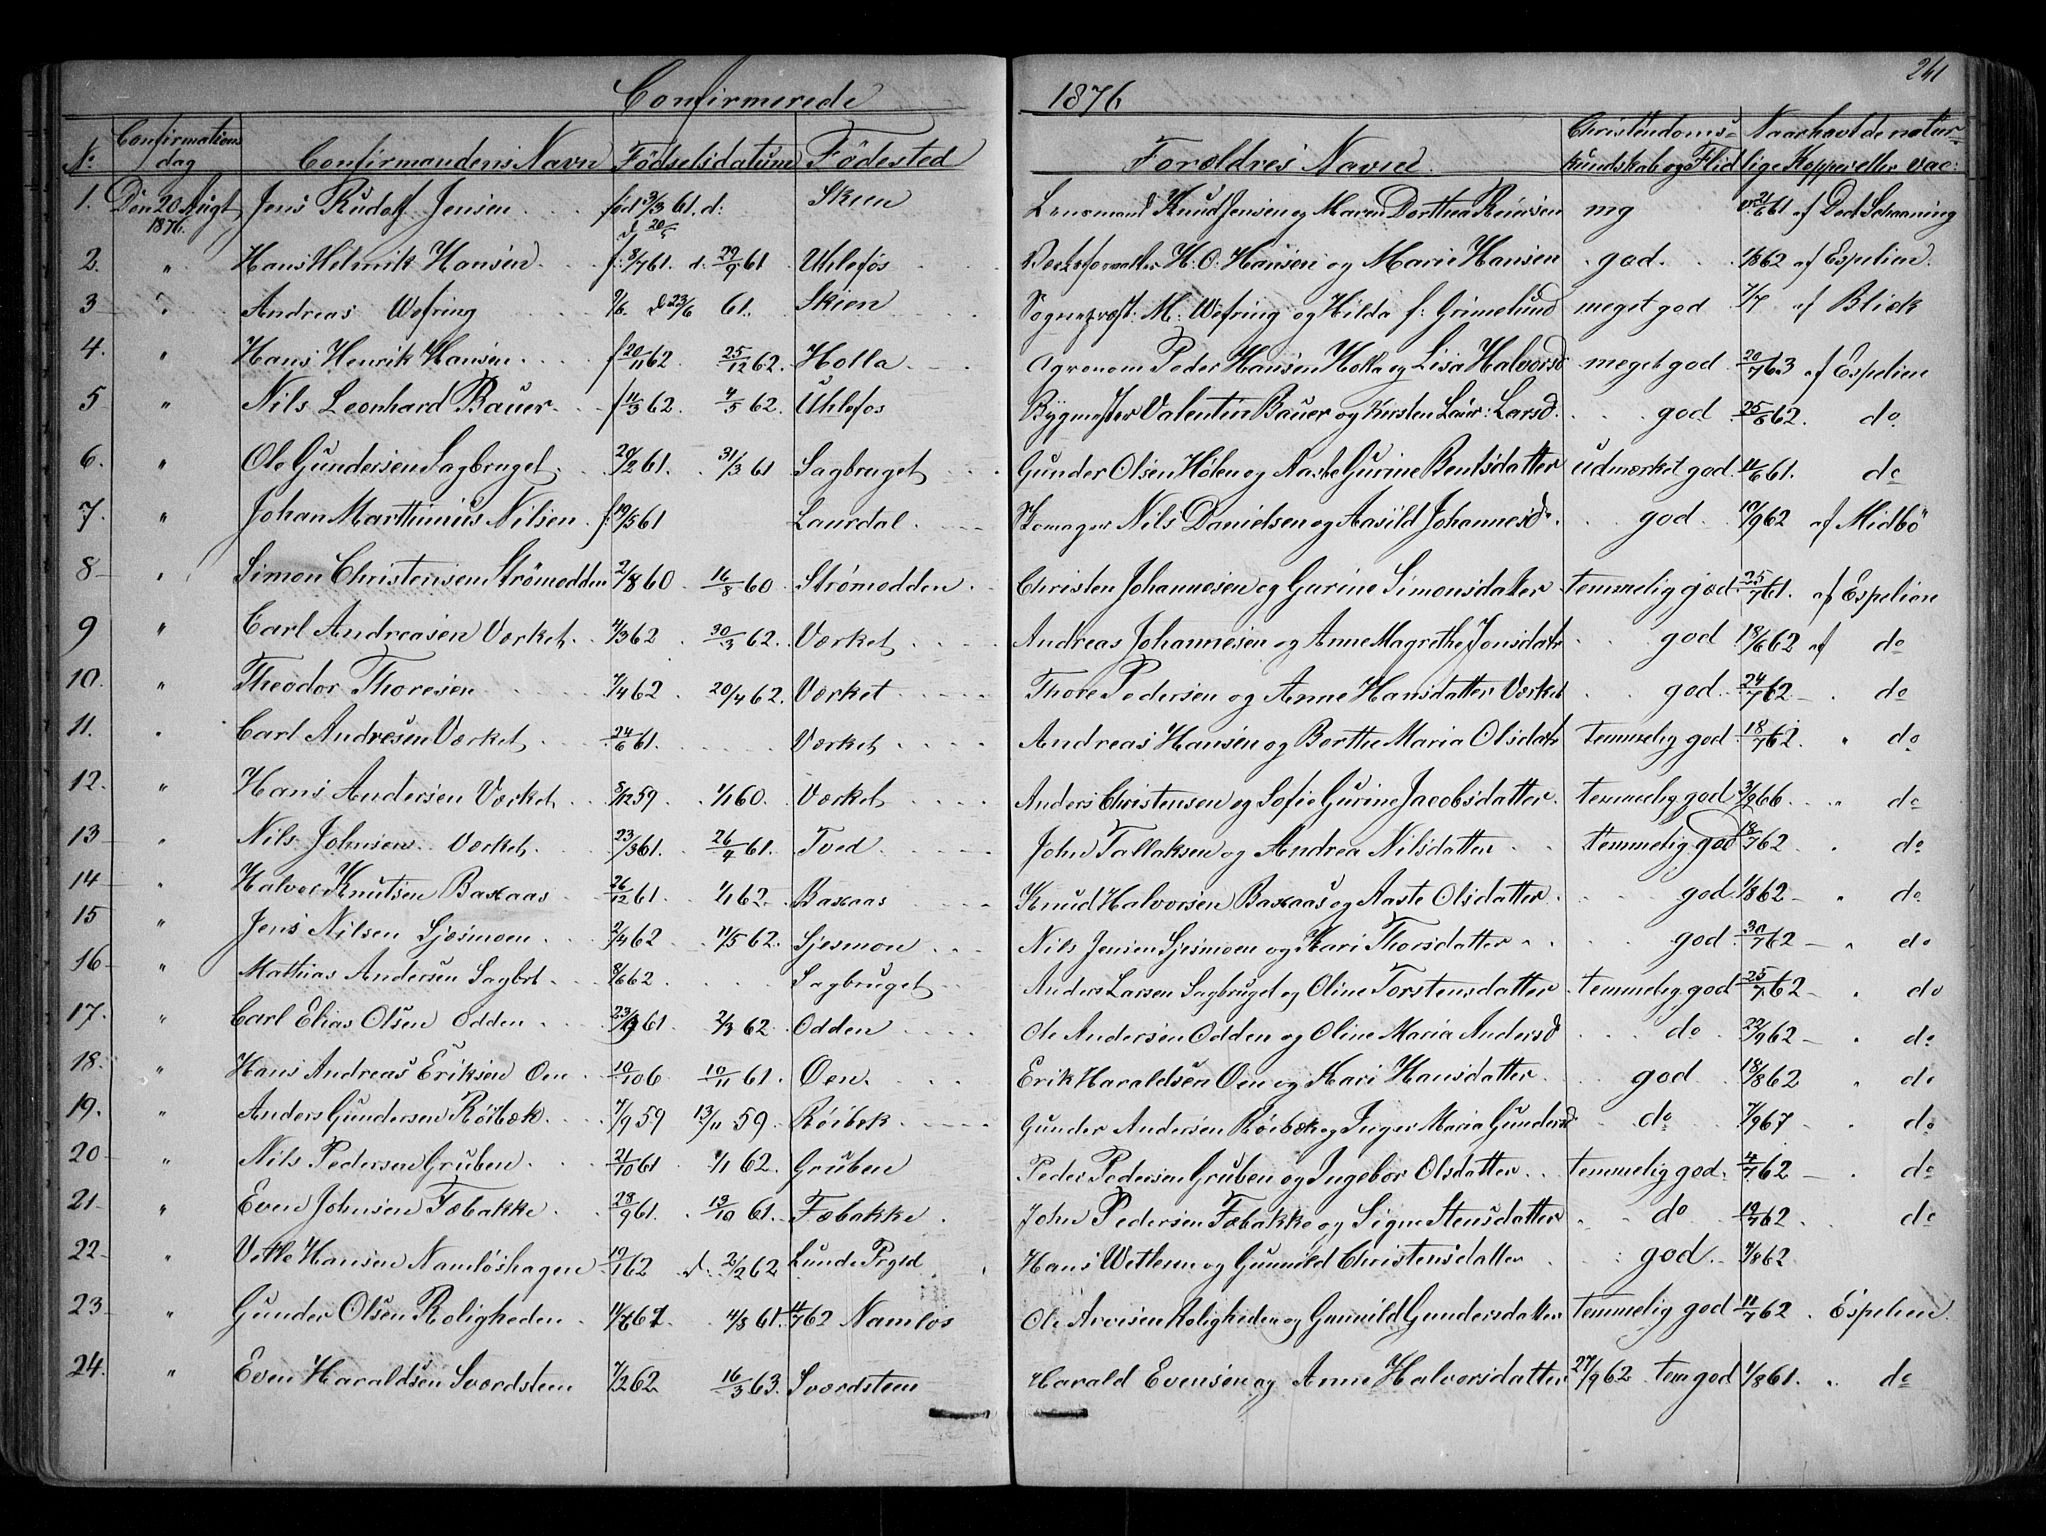 Confirmerede 1876 241
No Confirmations dag Confirmandens Navn Fødselsdatum Födested Forældres Navne Christendoms- kundskab og Flid Naar havt de natur- lige Kopper eller vac:
1. Den 20 Augt 1876. Jens Rudolf Jensen født 3/3 61. d: Skien Knud Jensen og Maren Dorthea mg 61 af Ded Schaaning
2. " Hans Hilmik Hansen f: 3/7 61. d: 29/9 61 Uhlefos H. O. Hansen og Marie Hansen god. 1/8 62 af Espelien.
3 " Andreas Wefring 9/6 d 23/6 61. Skien Sognepræst: M: Wefring og Hilda f: Grimelund meget god 7/7 af Blick
4. " Hans Henrik Hansen f 20/11 62 25/12 62. Holla Agronom Peder Hansen Holla og Lisa Halvorsd meget god 20/7 63 af Espelien
5 " Nils Leonhard Bauer f 11/3 62. 4/5 62. Uhlefos Bygmester Valentin Bauer og Kirsten Laur: Larsd. god 25/6 62. do
6. " Ole Gundersen Sagbruget 20/2 61. 31/3 61 Sagbruget Gunder Olsen Holen og Aaste Gurine Bentsdatter udmærket god. 11/6 61. do
7. " Johan Marthinius Nilsen f. 19/5 61 Laurdal Nils Danielsen og Aasild Johannesd. god. 19/9 62 af Midbö
8 " Simon Christensen Strömodden 2/8 60 16/8 60 Strømodden Christen Johannesen og Gurine Simonsdatter temmelig god 25/7 61. af Espelien
9 " Carl Andreasen Værket 4/3 62 30/3 62. Værket Andreas Johannesen og Anne Magrethe Jonsdatr god 18/6 62 af do
10. " Theodor Thoresen 7/4 62 20/4 62. Værket Thore Pedersen og Anne Hansdatter Værket god 24/7 62 " do
11. " Carl Andresen Værket 24/6 61. Værket Andreas Hansen og Berthe Maria Olsdatr temmelig god 18/7 62. " do
12. " Hans Andersen Værket 3/12 59 1/1 60. Værket Anders Christensen og Sofie Gurine Jacobsdatter temmelig god 3/9 66 " do
13 " Nils Johnsen Værket 23/3 61. 26/4 61. Tved John Tallaksen og Andrea Nilsdatter temmelig god 18/7 62 " do
14 " Halvor Knutsen Baxaas 26/12 61 1/1 62. Baxaas Knud Halvorsen Baxaas og Aaste Olsdatter god 1/8 62 " do
15 " Jens Nilsen Sjæsmoen 2/4 62 11/5 62. Sjesmon Nils Jensen Sjesmoen og Kari Thorsdatter god. 30/7 62 " do
16 " Mathias Andersen Sagbrt 8/6 62 Sagbruget Anders Larsen Sagbruget og Oline Torstensdatter temmelig god 25/7 62 " do
17. " Carl Elias Olsen Odden 61 2/3 62 Odden Ole Andersen Odden og Oline Maria Andersd do 22/9 62 " do
18. " Hans Andreas Eriksen Oen 10/10 6 10/11 61. Oen. Erik Haraldsen Oen og Kari Hansdatter god 18/8 62 " do
19. " Anders Gundersen Röibæk 7/9 59 13/11 59. Röibek Gunder Andersen Röibæk og Inger Maria Gundersd do 7/9 67 " do
20 " Nils Pedersen Gruben 21/10 61 1/1 62. Gruben Peder Pedersen Gruben og Ingebor Olsdatter temmelig god. 4/7 62 " do
21 " Even Johnsen Fæbakke 28/9 61. 13/10 61. Fæbakke John Pedersen Fæbakke og Signe Stensdatter do 19/7 62 do
22 " Vetle Hansen Namløshagen 19/1 62 d: 2/2 62 Lunde Prgld Hans Wetlesen og Gunnild Christensdatter god. 4/8 62
23 " Gunder Olsen Roligheden 61 4/8 61. 62 Namlos Ole Arvesen Roligheden og Gunnild Gundersdatter temmelig god 11/7 62 Espelien.
24. " Even Haraldsen Sværdsteen 7/2 62 16/3 63. Sværdsteen Harald Evensen og Anne Halvorsdatter 27/9 62 tem god 1/8 61. " do